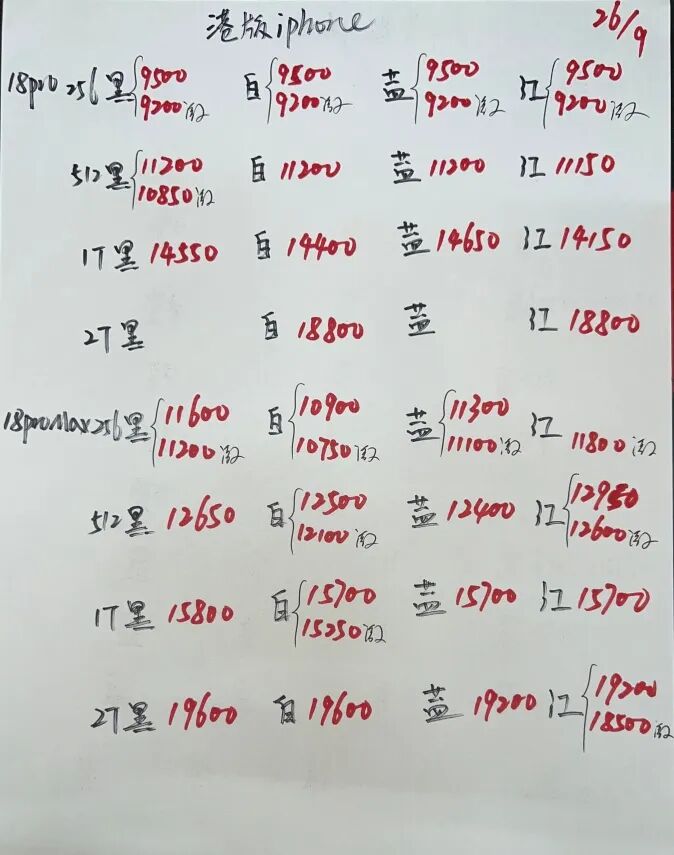 港版iphone 26/9
18pro 256 黑 9500 白 9500 蓝 9500 江 9500
9200激 9200激 9200激 9200激
512 黑 11200 白 11200 蓝 11200 江 11150
10850激
1T 黑 14550 白 14400 蓝 14650 江 14150
2T 黑 白 18800 蓝 江 18800
18proMax 256 黑 11600 白 10900 蓝 11300 江 11800激
11200激 10750激 11100激
512 黑 12650 白 12500 蓝 12400 江 12950
12100激 12600激
1T 黑 15800 白 15700 蓝 15700 江 15700
15250激
2T 黑 19600 白 19600 蓝 19200 江 19200
18500激